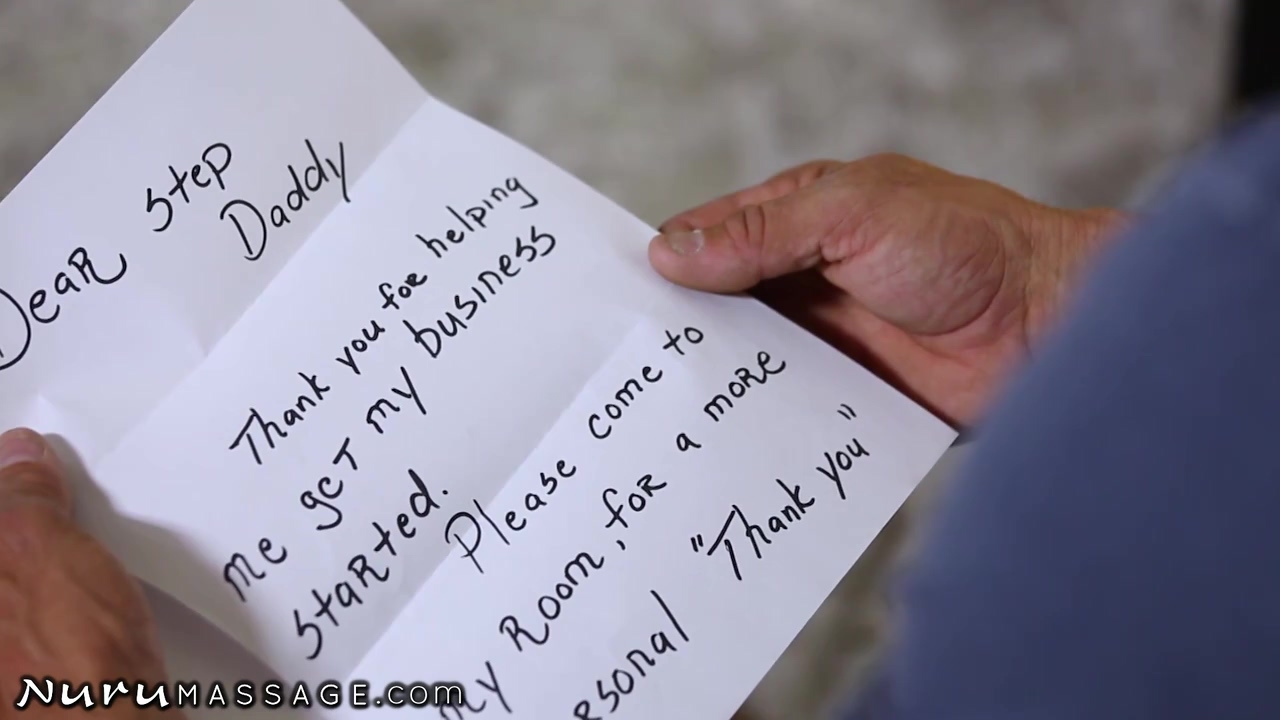 Dear step
Daddy
Thank you for helping
me get my business
started.
Please come to
my room, for a more
rsonal "Thank you"
NURUMASSAGE.com